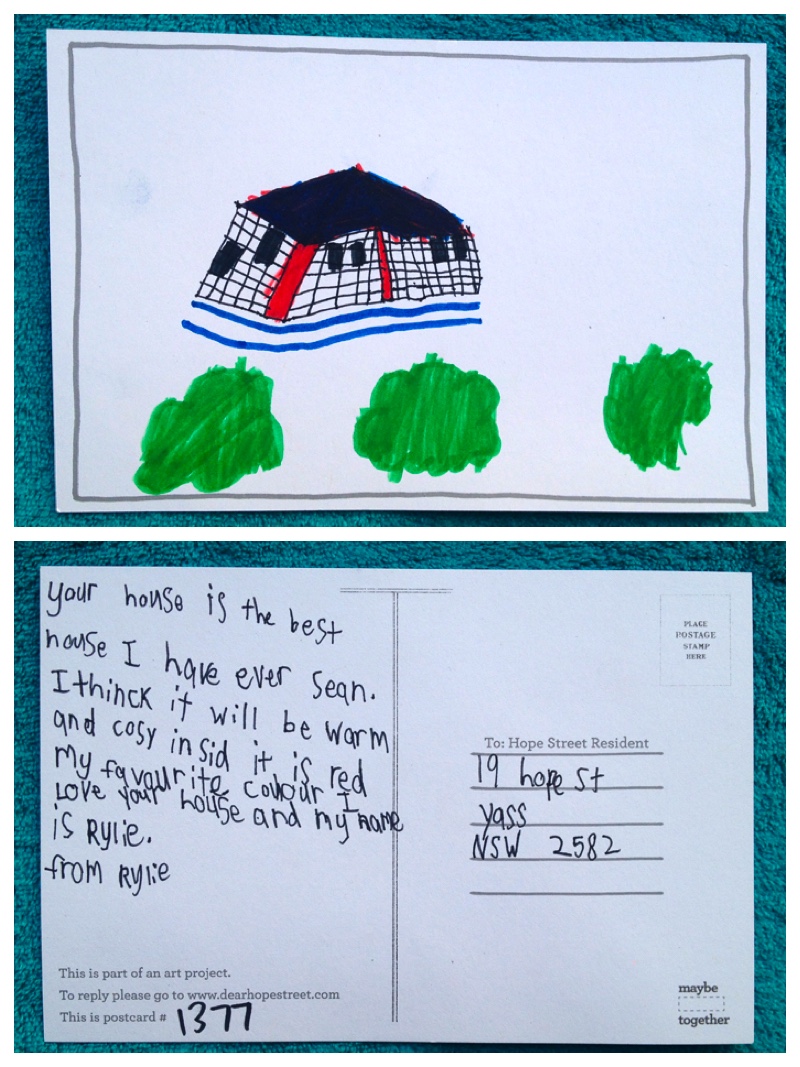 your house is the best
house I have ever sean.
I thinck it will be warm
and cosy in sid it is red
my favourite colour I
Love your house and my name
is Rylie.
from Rylie
This is part of an art project.
To reply please go to www.dearhopestreet.com
This is postcard # 1377
PLACE
POSTAGE
STAMP
HERE
To: Hope Street Resident
19 hope St
yass
NSW 2582
maybe
together